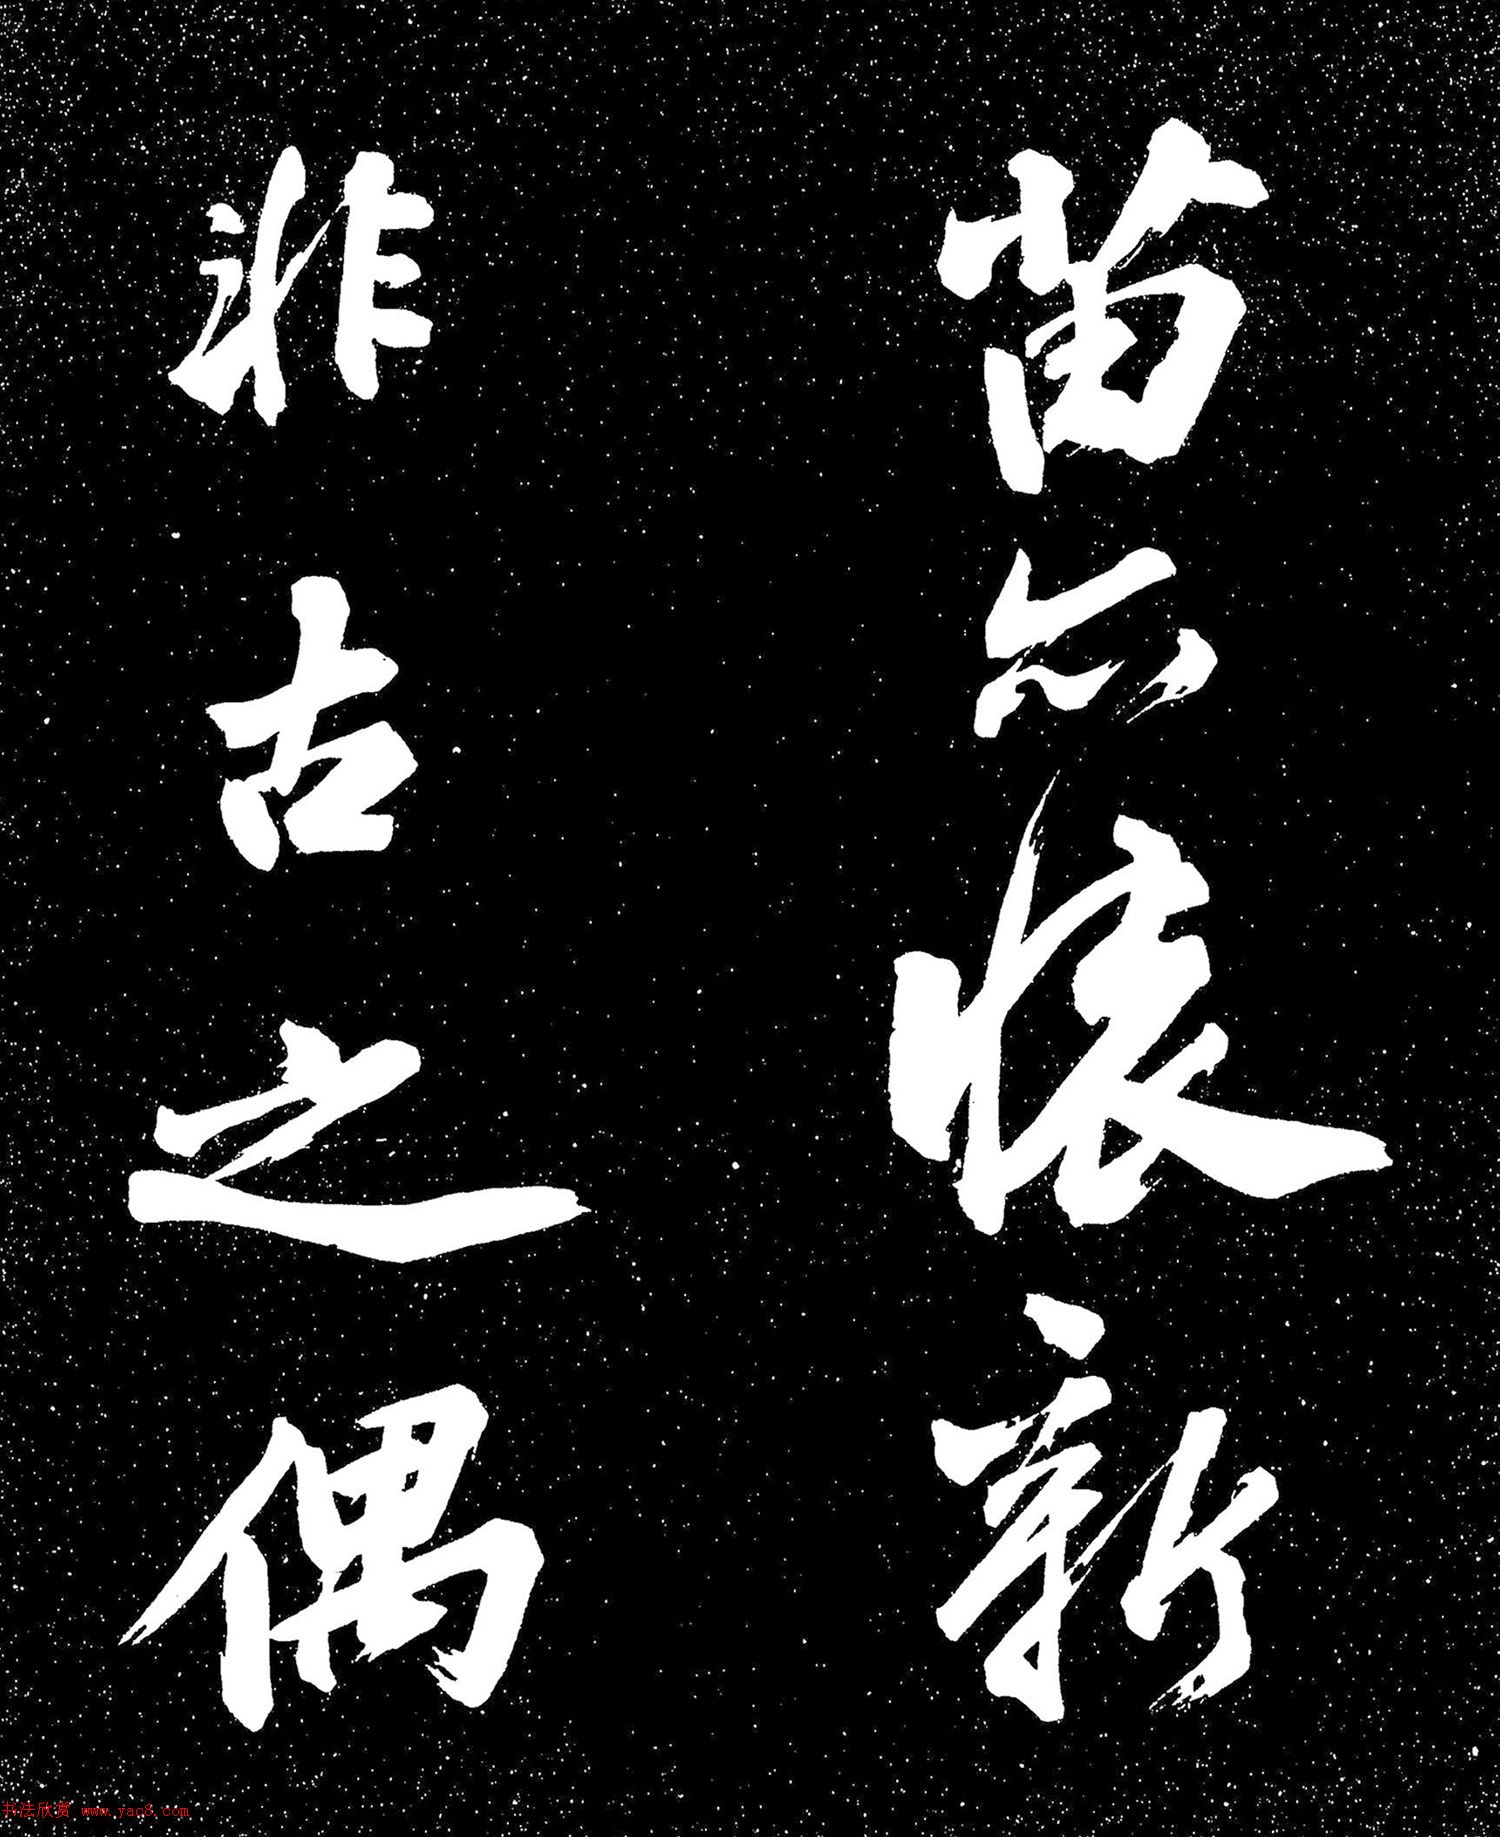 苗亦懷新
非古之偶
书法欣赏 www.yac8.com